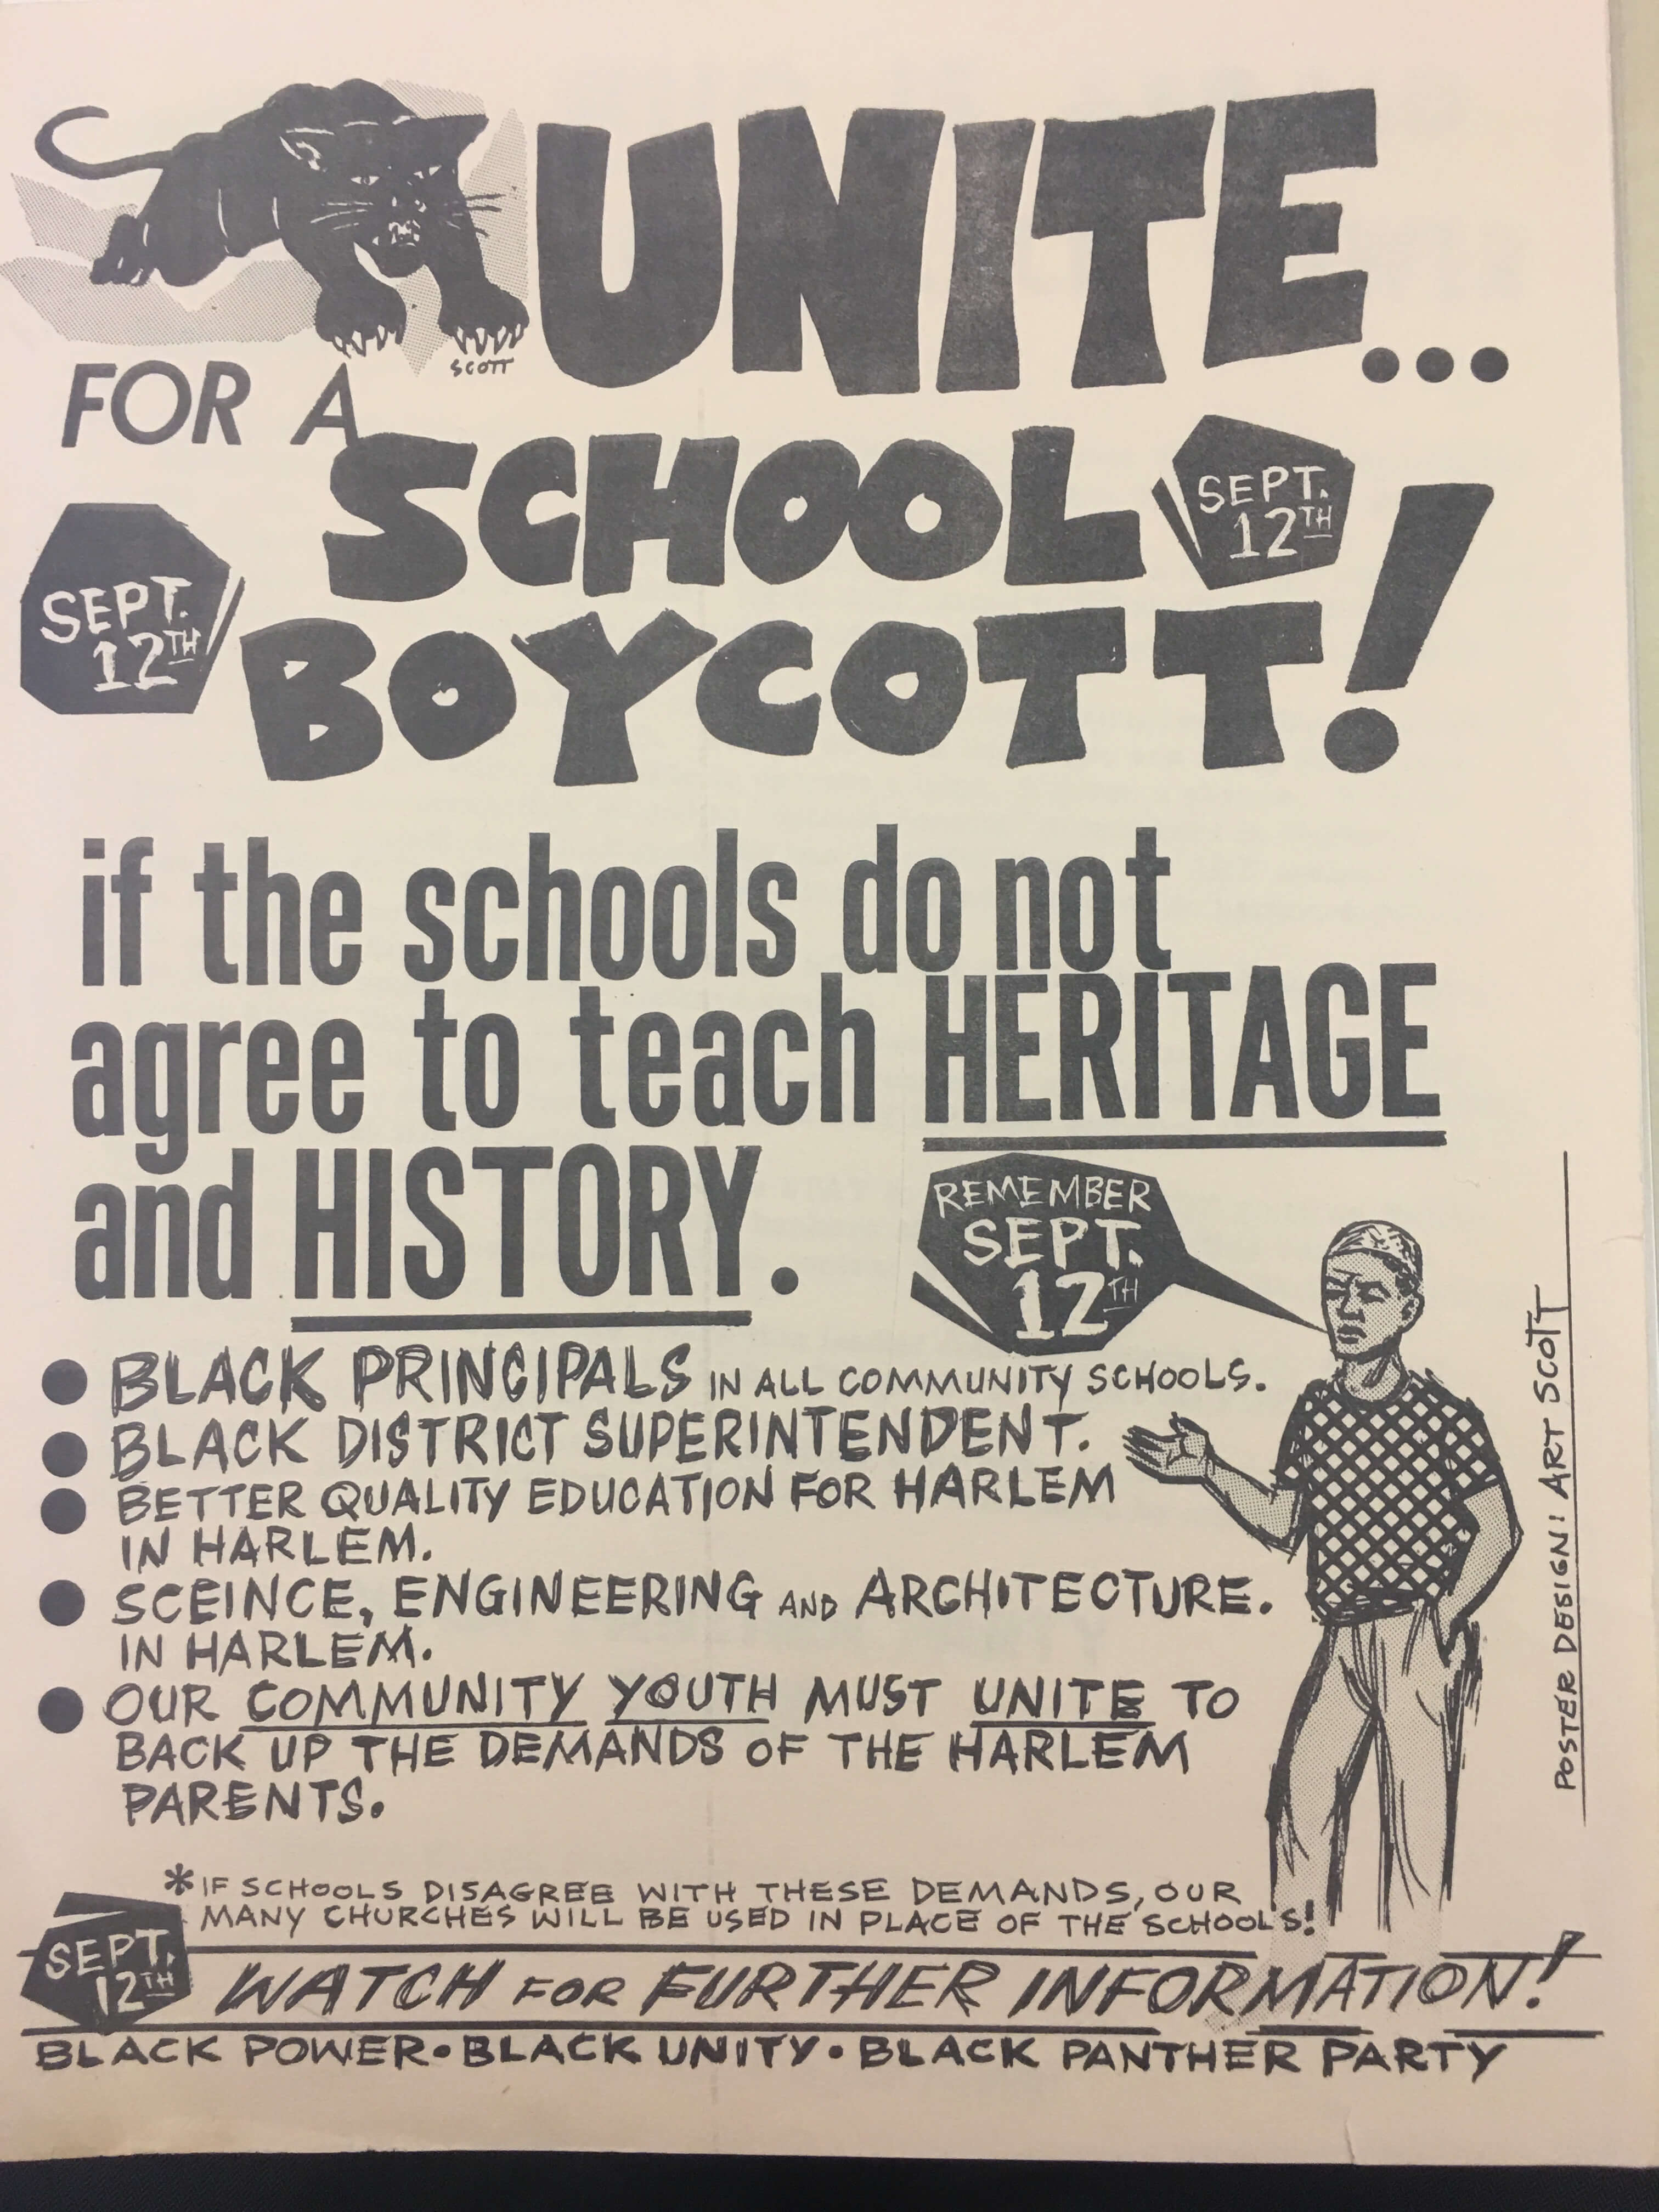 UNITE...
SCOTT
FOR A
SCHOOL
SEPT.
12TH
SEPT.
12TH
BOYCOTT!
if the schools do not
agree to teach HERITAGE
and HISTORY.
REMEMBER
SEPT.
12TH
● BLACK PRINCIPALS IN ALL COMMUNITY SCHOOLS.
● BLACK DISTRICT SUPERINTENDENT.
● BETTER QUALITY EDUCATION FOR HARLEM
IN HARLEM.
● SCEINCE, ENGINEERING AND ARCHITECTURE.
IN HARLEM.
● OUR COMMUNITY YOUTH MUST UNITE TO
BACK UP THE DEMANDS OF THE HARLEM
PARENTS.
POSTER DESIGN: ART SCOTT
*IF SCHOOLS DISAGREE WITH THESE DEMANDS, OUR
MANY CHURCHES WILL BE USED IN PLACE OF THE SCHOOLS!
SEPT.
12TH
WATCH FOR FURTHER INFORMATION!
BLACK POWER • BLACK UNITY • BLACK PANTHER PARTY